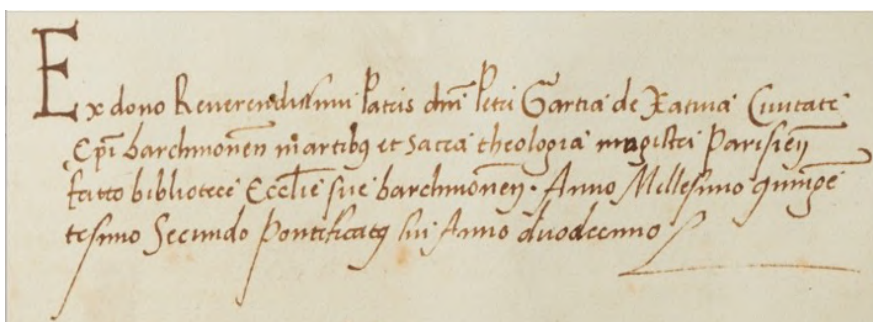 Ex dono Reverendissimi Patris dñi Petri Garcia de Xativa Civitate
Ep̄i barchinonen̄ in artibus et sacra theologia magistri Parisien̄
facto bibliotece Eccl̄ie sue barchinonen̄. Anno Millesimo quingē
tesimo Secundo Pontificatus sui Anno duodecimo